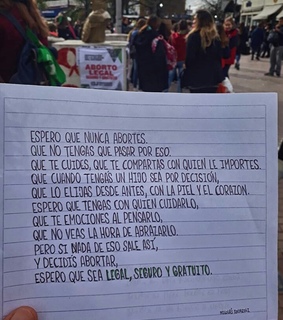 ABORTO
LEGAL
ESPERO QUE NUNCA ABORTES.
QUE NO TENGAS QUE PASAR POR ESO.
QUE TE CUIDES, QUE TE COMPARTAS CON QUIEN LE IMPORTES.
QUE CUANDO TENGAS UN HIJO SEA POR DECISIÓN,
QUE LO ELIJAS DESDE ANTES, CON LA PIEL Y EL CORAZON.
ESPERO QUE TENGAS CON QUIEN CUIDARLO,
QUE TE EMOCIONES AL PENSARLO,
QUE NO VEAS LA HORA DE ABRAZARLO.
PERO SI NADA DE ESO SALE ASÍ,
Y DECIDÍS ABORTAR,
ESPERO QUE SEA LEGAL, SEGURO Y GRATUITO.